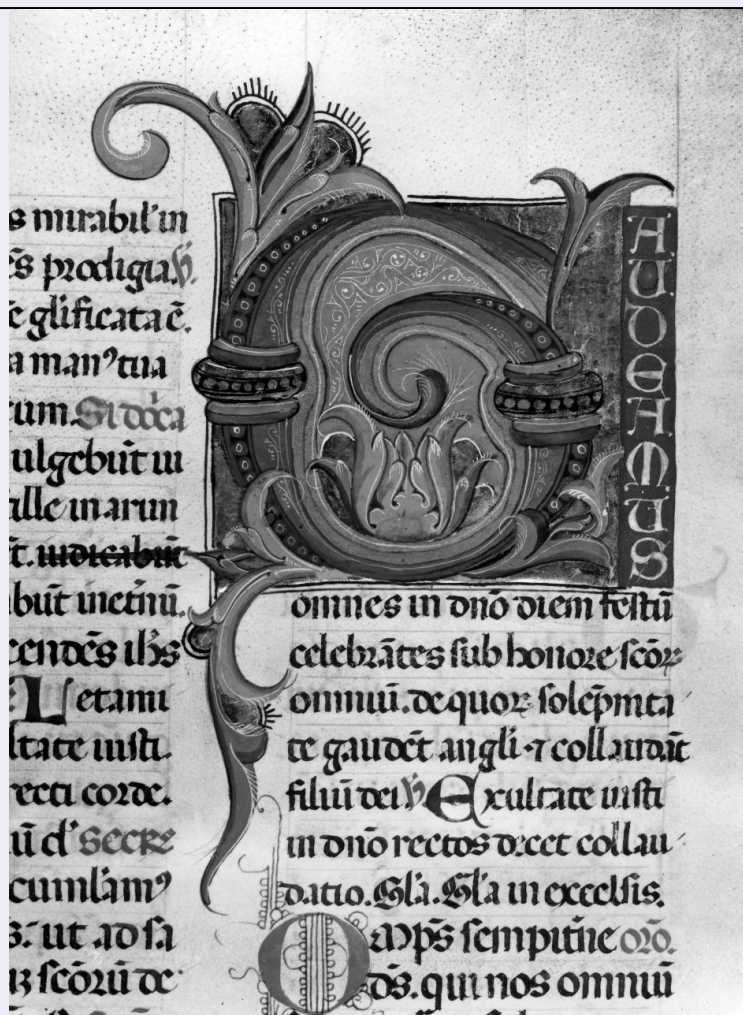 s mirabil' in
ēs prodigia. V.
e gl'ificata ē.
a man⁹ tua
cum. Si dōca
ulgebūt iu
ille in arun
t. iudicabūt
būt inet'nū.
cendēs ih's
Letami
ltate iusti.
recti corde.
ū d' Secre
cum lām⁹
ꝫ. ut ad sa
ꝫ scōrū de
GAUDEAMUS
omnes in dnō diem festū
celebrātes sub honore scōꝝ
omniū. de quoꝝ solēpnita
te gaudēt angli ⁊ collaudāt
filiū dei. V. Exultate iusti
in dnō rectos decet collau
datio. Gl'a. Gl'a in excelsis.
OMps sempit'ne orō.
ds. qui nos omniū